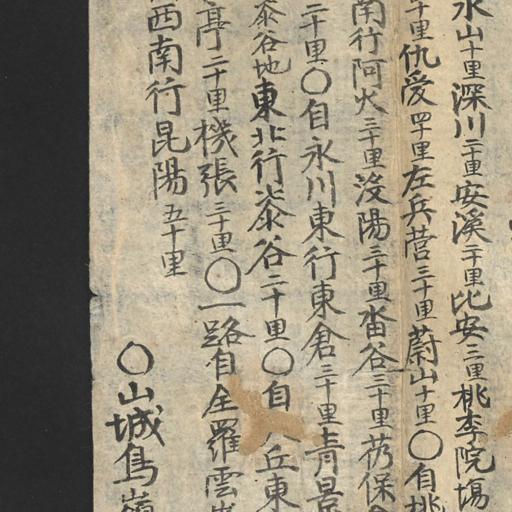 氷山十里深川二十里安溪二十里比安三里桃李院場
十里仇爱四十里左兵营三十里蔚山十里〇自桃
南行阿火三十里沒陽三十里畓谷三十里芿保
二十里〇自永川東行東倉三十里青景
泰谷地東北行泰谷二十里〇自 丘東
亭二十里機張三十里〇一路自全羅雲峯
西南行昆陽五十里
〇山城鳥嶺